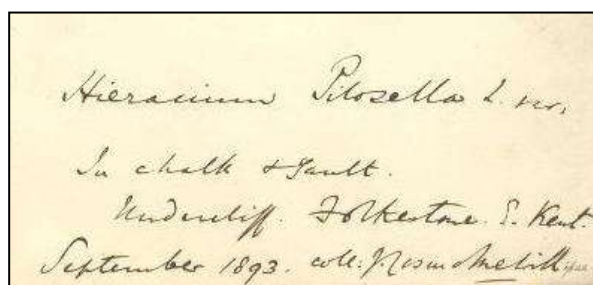 Hieracium Pilosella L. var.
In chalk & Gault.
Undercliff. Folkestone. E. Kent.
September 1893. coll: J. Cosmo Melvill